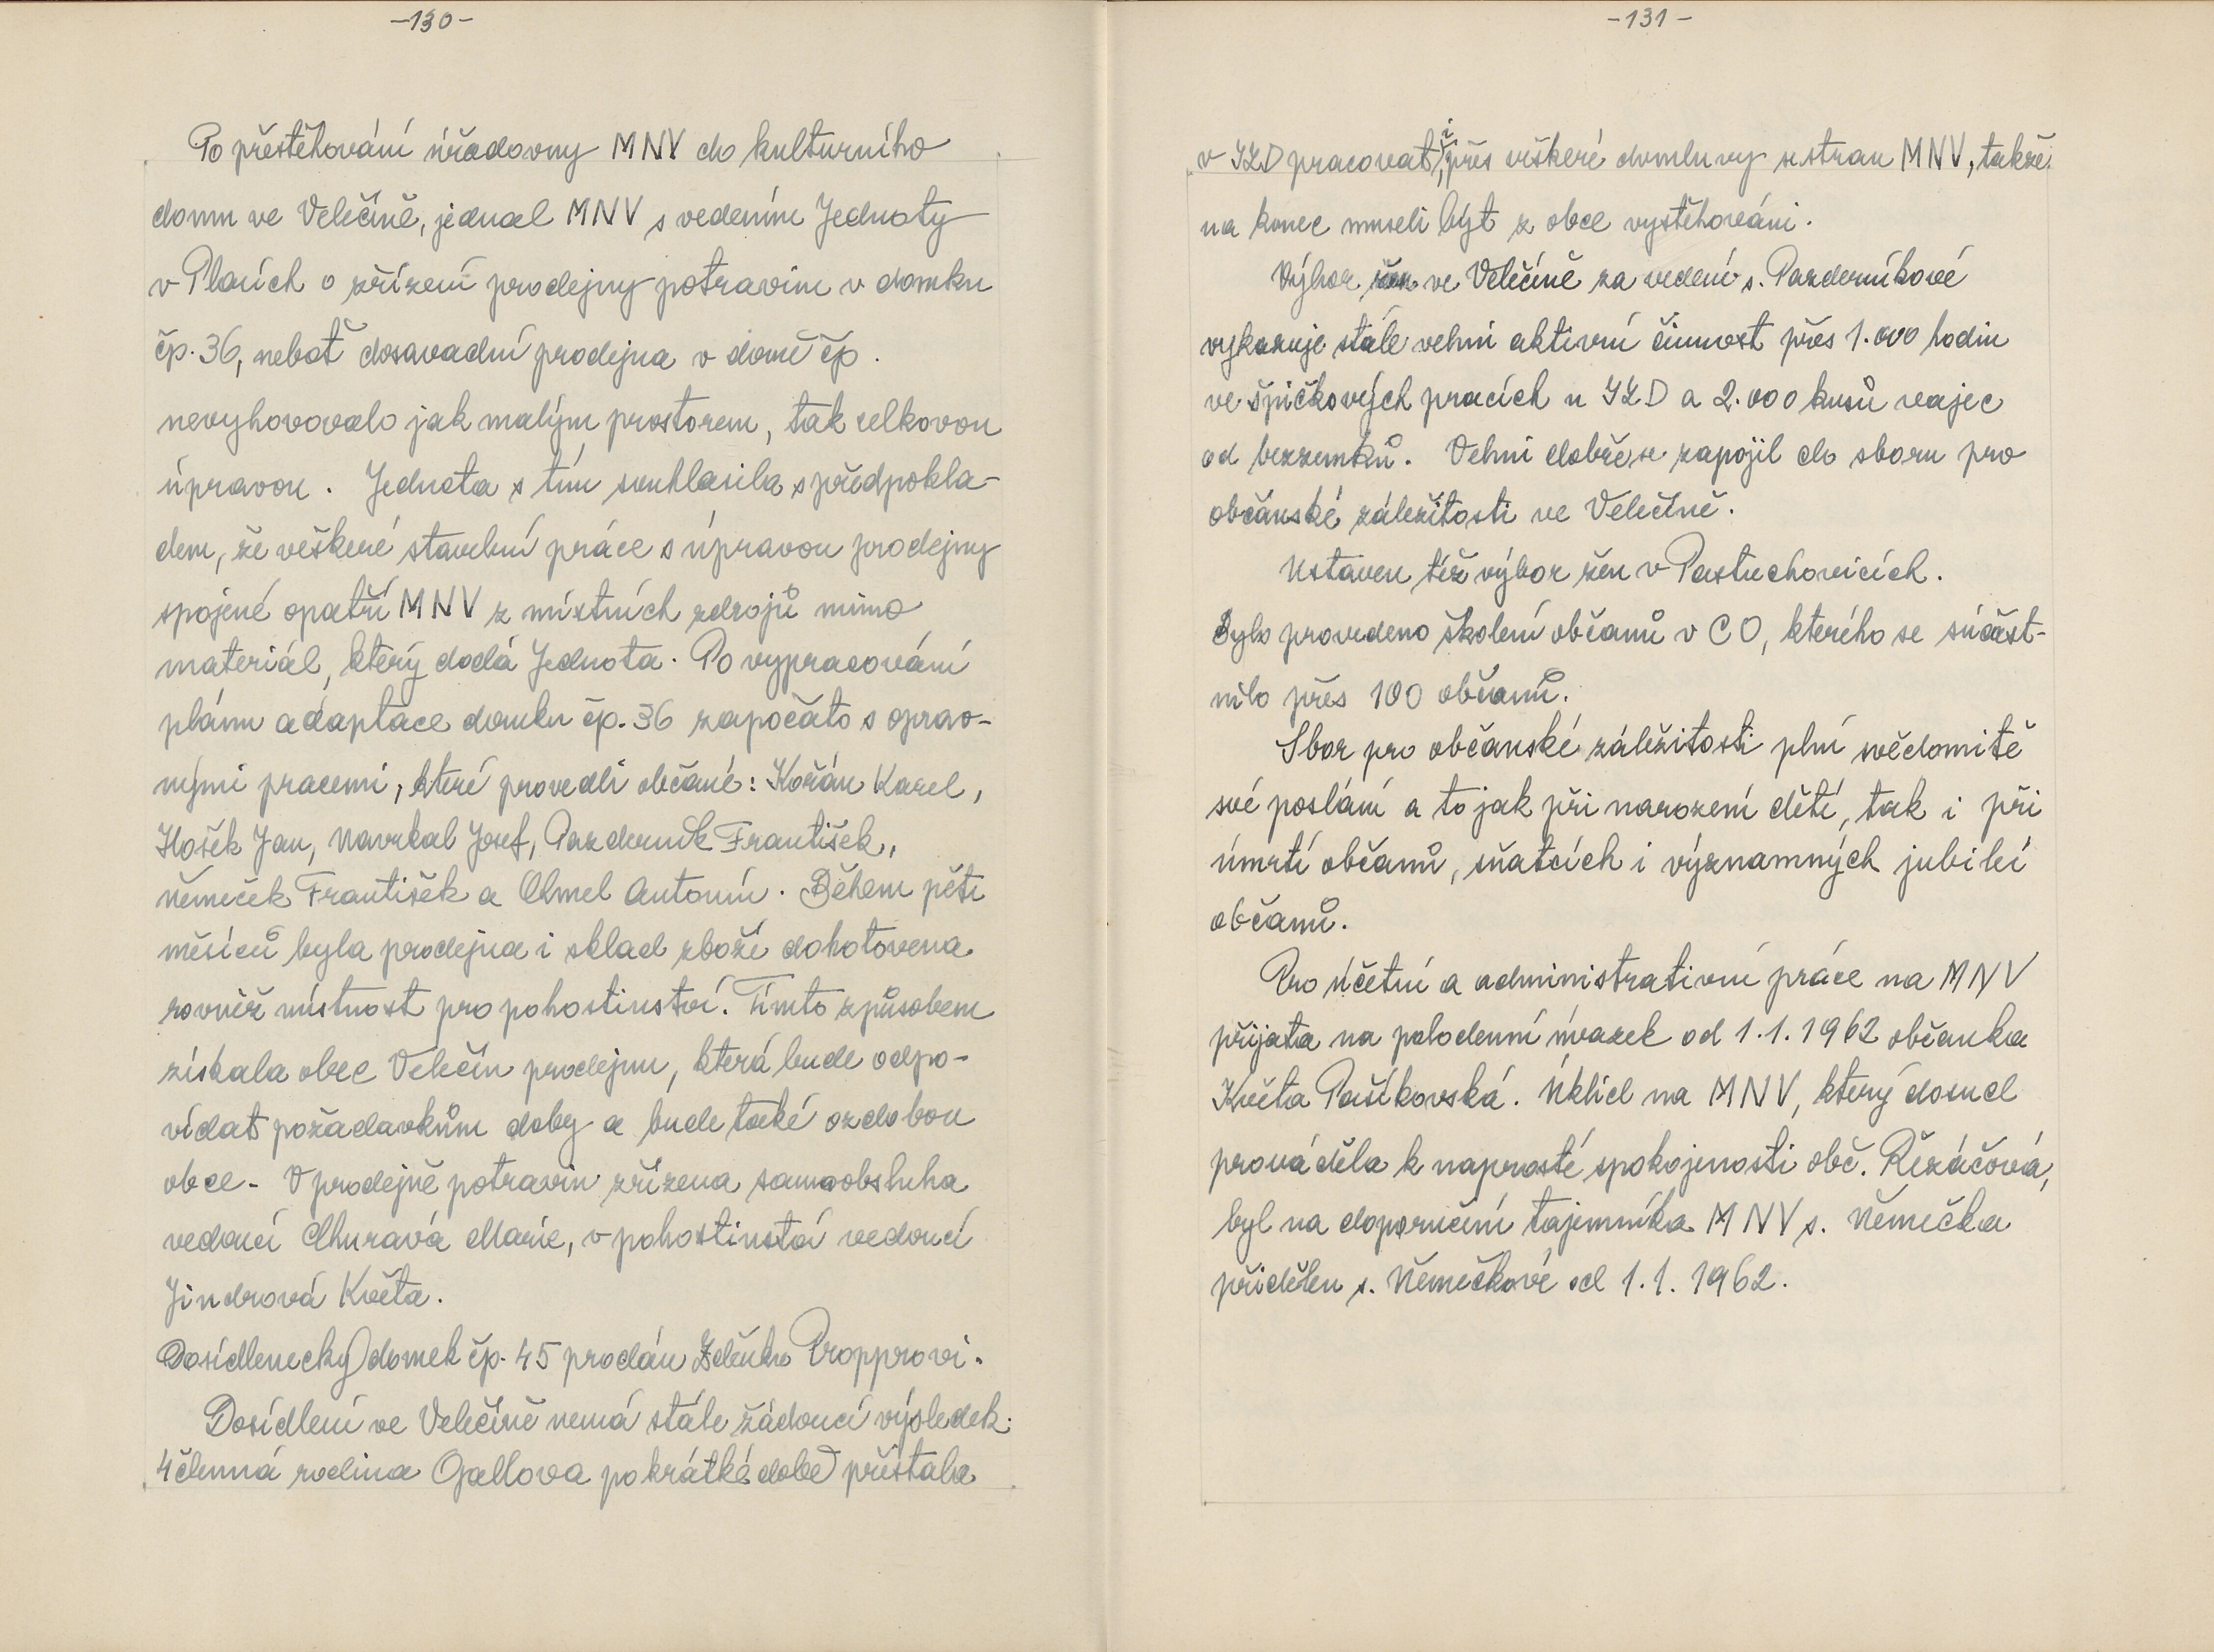 -130-
Po přestěhování úřadovny MNV do kulturního
domu ve Velečíně, jednal MNV s vedením Jednoty
v Plasích o zřízení prodejny potravin v domku
čp. 36, neboť dosavadní prodejna v domě čp.
nevyhovovalo jak malým prostorem, tak celkovou
úpravou. Jednota s tím souhlasila s předpokla-
dem, že veškeré stavební práce s úpravou prodejny
spojené opatří MNV z místních zdrojů mimo
materiál, který dodá Jednota. Po vypracování
plánu adaptace domku čp. 36 započato s oprav-
nými pracemi, které provedli občané: Kořán Karel,
Hošek Jan, Navrkal Josef, Pazderník František,
Němeček František a Chmel Antonín. Během pěti
měsíců byla prodejna i sklad zboží dohotovena
rovněž místnost pro pohostinství. Tímto způsobem
získala obec Velečín prodejnu, která bude odpo-
vídat požadavkům doby a bude také ozdobou
obce - V prodejně potravin zřízena samoobsluha
vedoucí Churavá Marie, v pohostinství vedoucí
Jindrová Květa.
Dosídlenecký domek čp. 45 prodán Zdeňku Propprovi.
Dosídlení ve Velečíně nemá stále žádoucí výsledek.
4členná rodina Gallova po krátké době přestala
-131-
v JZD pracovat, i přes veškeré domluvy se stran MNV, takže
na konec museli být z obce vystěhováni.
Výbor žen ve Velečíně za vedení s. Pazderníkové
vykazuje stále velmi aktivní činnost přes 1.000 hodin
ve špičkových pracích u JZD a 2.000 kusů vajec
od bezzemků. Velmi dobře se zapojil do sboru pro
občanské záležitosti ve Velečíně.
Ustaven též výbor žen v Pastuchovicích.
Bylo provedeno školení občanů v CO, kterého se súčast-
nilo přes 100 občanů.
Sbor pro občanské záležitosti plní svědomitě
své poslání a to jak při narození dětí, tak i při
úmrtí občanů, sňatcích i významných jubileí
občanů.
Pro účetní a administrativní práce na MNV
přijata na polodenní úvazek od 1.1.1962 občanka
Květa Pašíkovská. Úklid na MNV, který dosud
prováděla k naprosté spokojenosti obč. Řezáčová,
byl na doporučení tajemníka MNV s. Němečka
přidělen s. Němečkové od 1.1.1962.